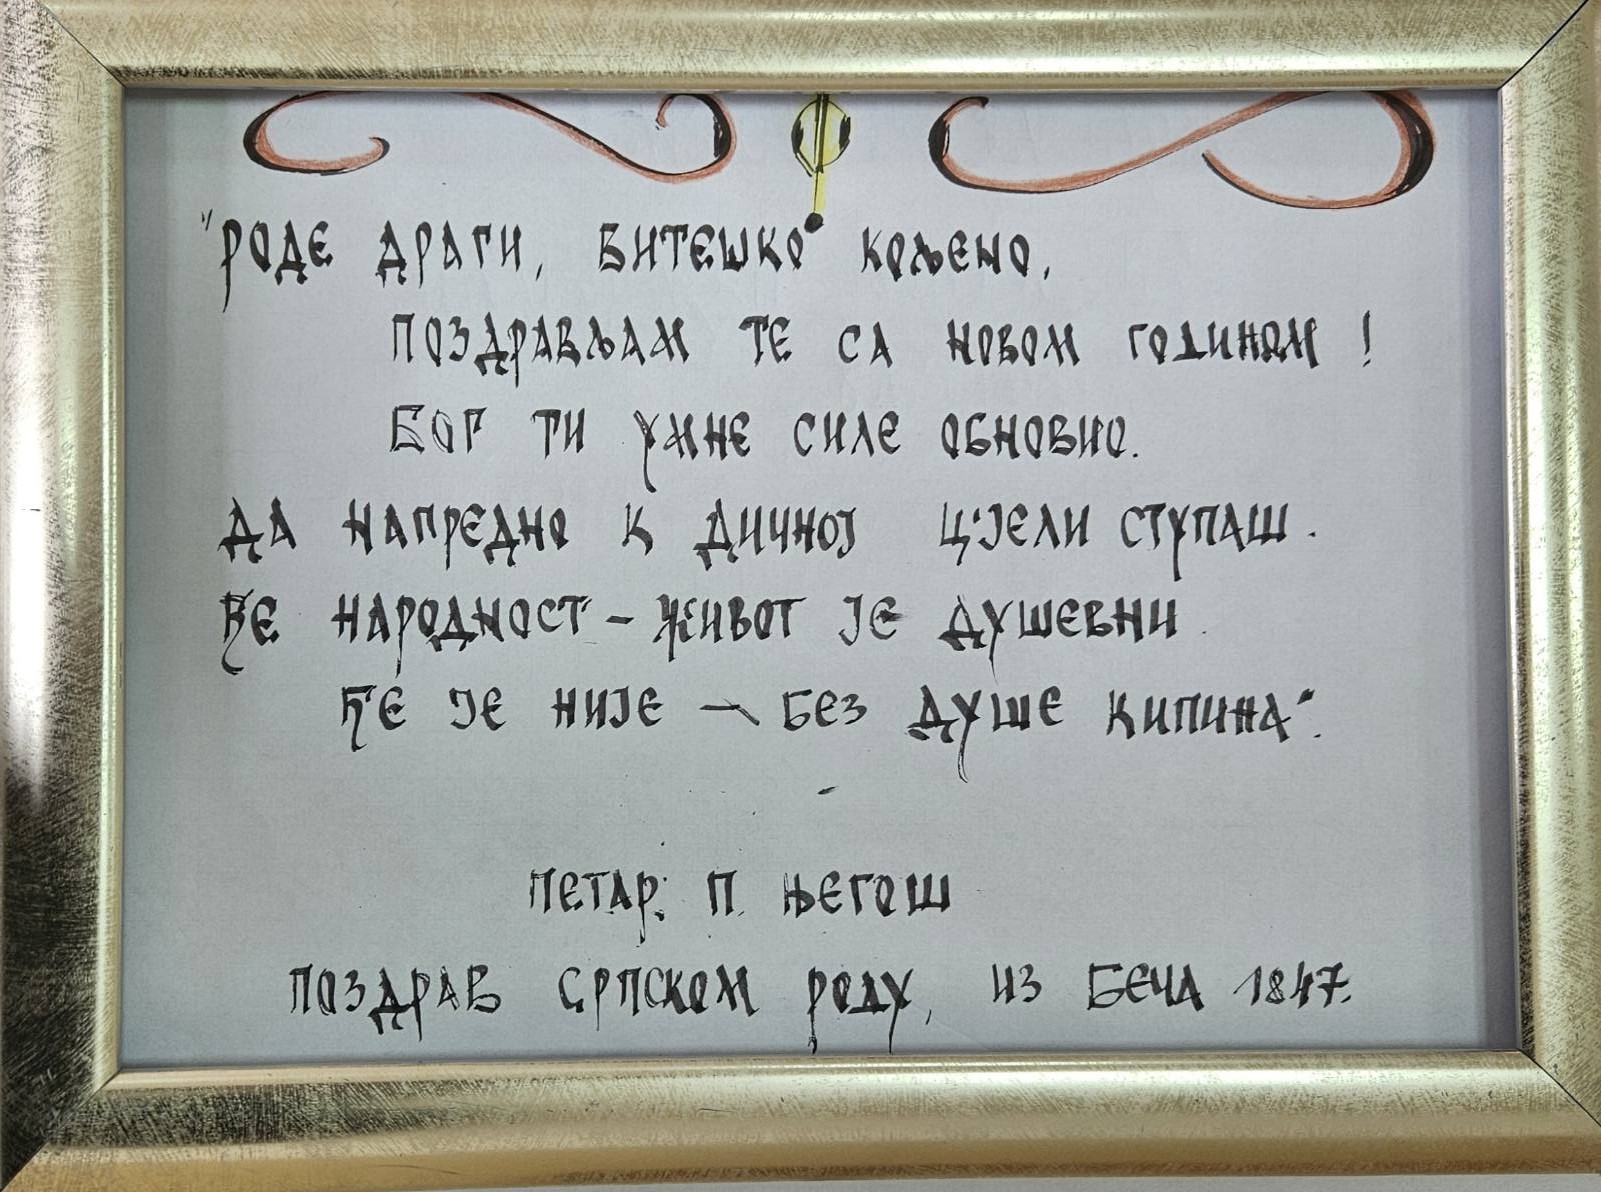 "РОДЕ ДРАГИ, ВИТЕШКО КОЉЕНО,
ПОЗДРАВЉАМ ТЕ СА НОВОМ ГОДИНОМ !
БОГ ТИ УМНЕ СИЛЕ ОБНОВИО.
ДА НАПРЕДНО К ДИЧНОЈ ЦЈЕЛИ СТУПАШ.
ЂЕ НАРОДНОСТ - ЖИВОТ ЈЕ ДУШЕВНИ.
ЂЕ ЈЕ НИЈЕ - БЕЗ ДУШЕ КИПИНА".
ПЕТАР. П. ЊЕГОШ
ПОЗДРАВ СРПСКОМ РОДУ, ИЗ БЕЧА 1847.